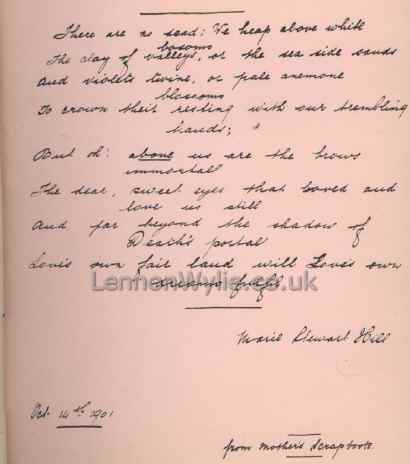 There are no dead: We heap above white bosoms
The clay of valleys, or the sea side sands
And violets twine, or pale anemone blossoms
To crown their resting with our trembling
hands;
But oh: above us are the brows
immortal
The dear, sweet eyes that loved and
love us still
And far beyond the shadow of
Death's portal
Love's own fair land will Love's own
dreams fulfil
LennonWylie.co.uk
Marie Stewart Hill
Oct 14th 1901
from Mother's Scrapbook.